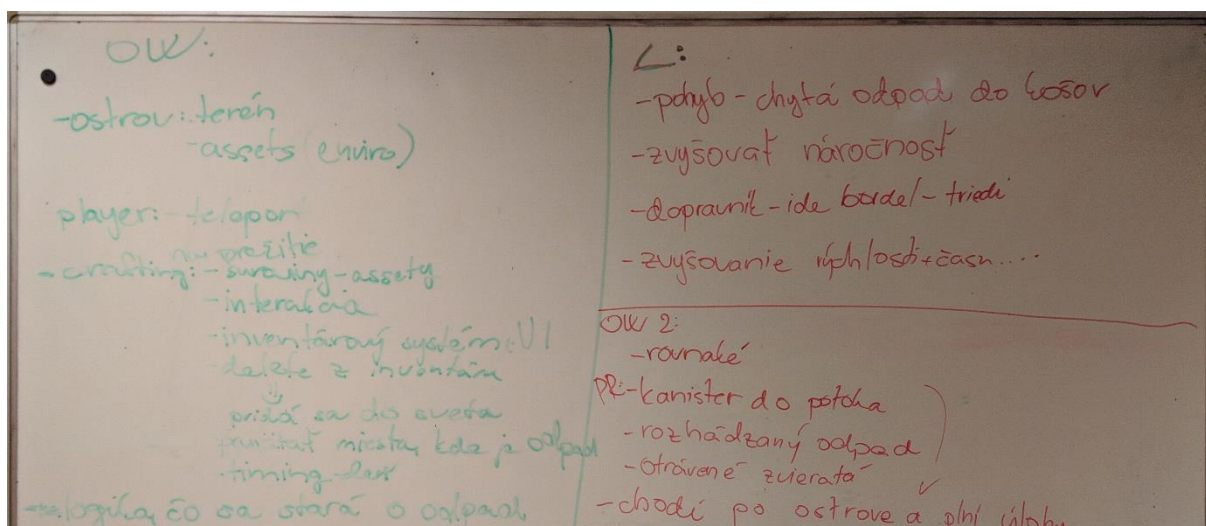 OW:
-ostrov: terén
-assets (enviro)
player: - teleport
prežitie
- crafting: - suroviny - assety
- interakcia
- inventárový systém: UI
- delete z inventára
pridá sa do sveta
miesta, kde je odpad
- timing
logika, čo sa stará o odpad
L:
- pohyb - chytá odpad do košov
- zvyšovať náročnosť
- dopravník - ide bordel - triedi
- zvyšovanie rýchlosti + času....
OW 2:
- rovnaké
PR: - kanister do potoka
- rozhádzaný odpad
- otrávené zvieratá
- chodí po ostrove a plní úlohy